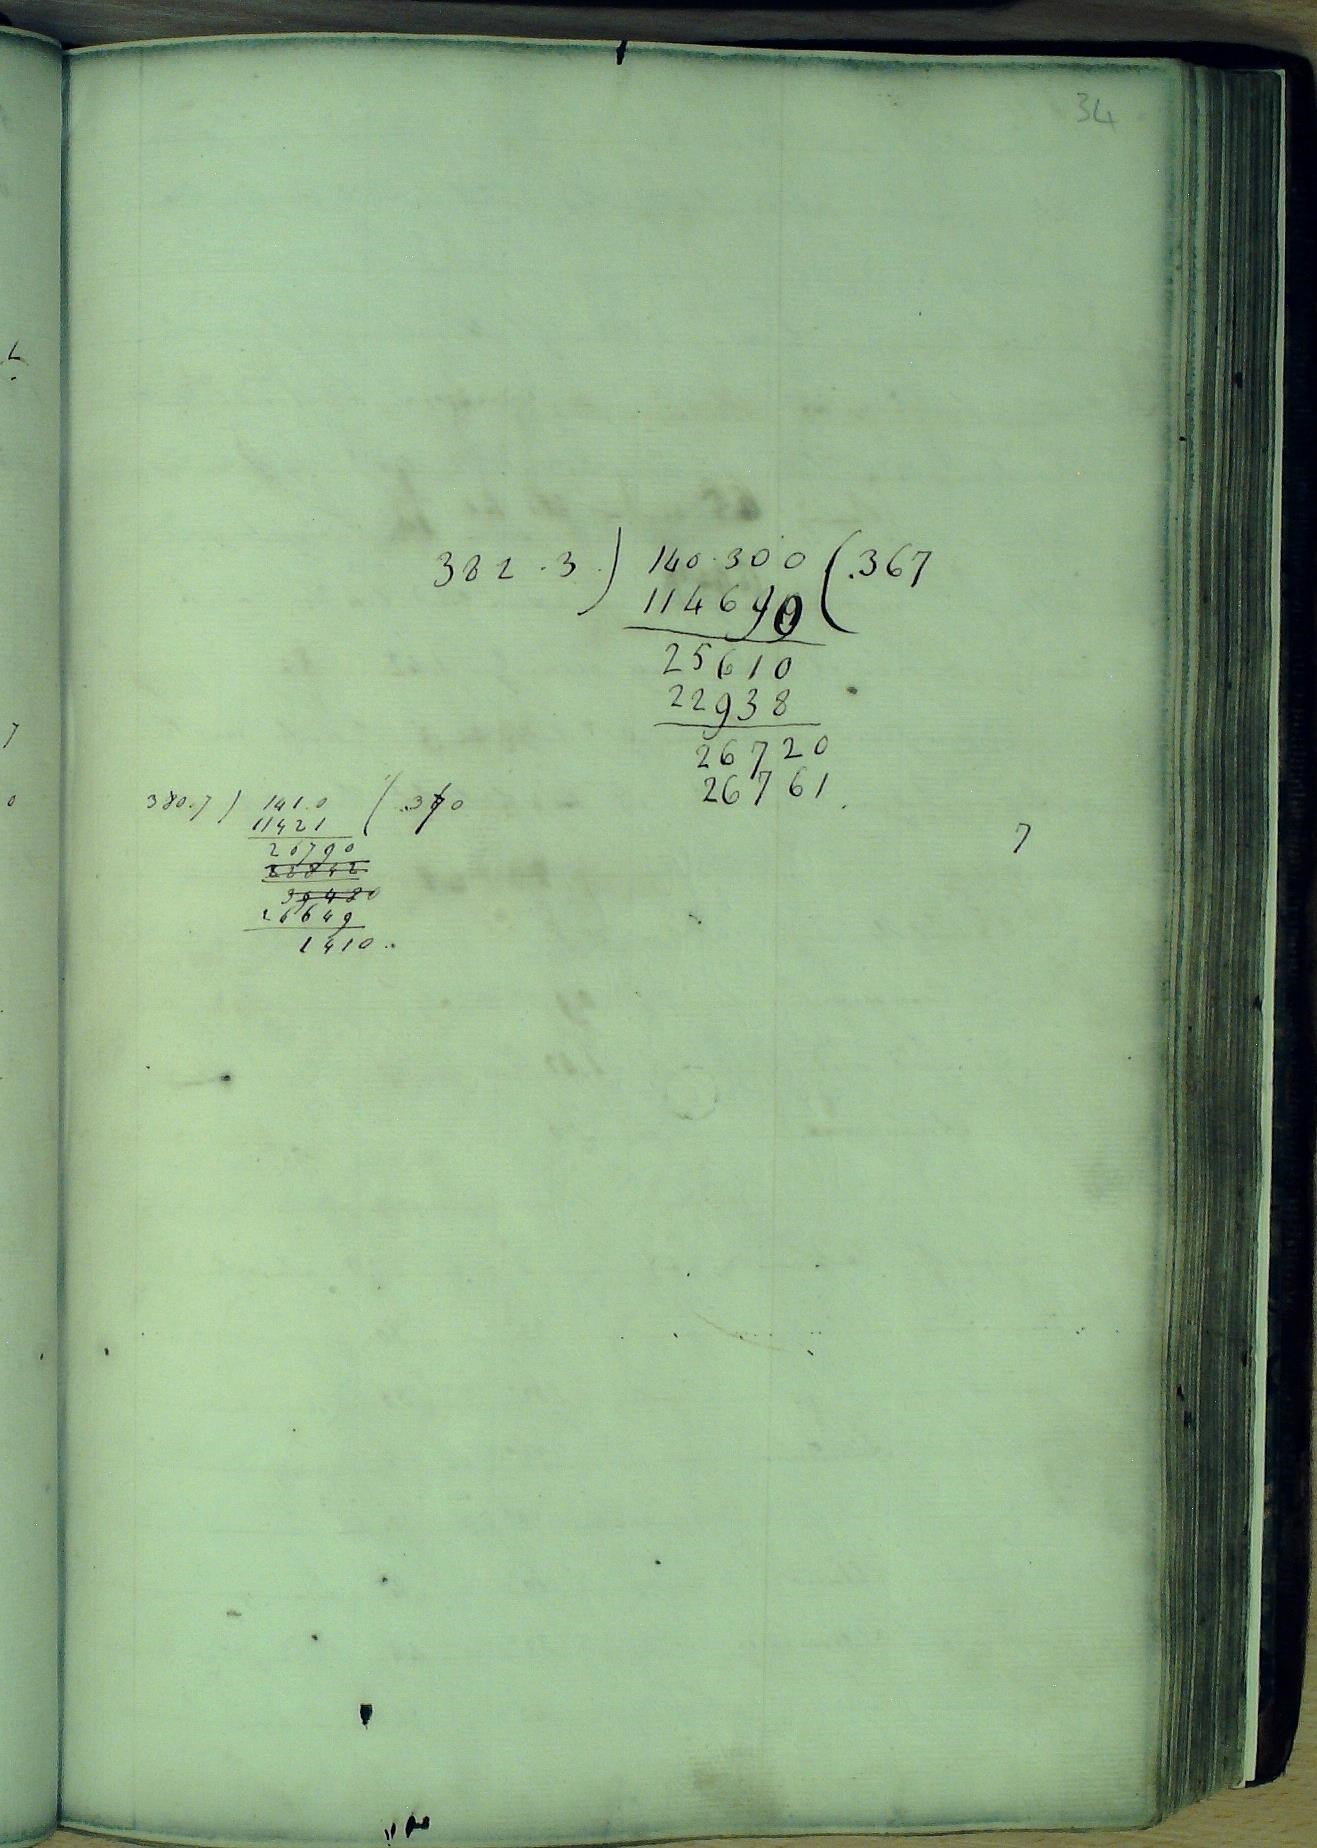 34
382.3 ) 140.300 ( .367
114690
25610
22938
26720
26761
380.7 ) 141.0 ( .370
11421
26790
22842
39480
26649
1410
7